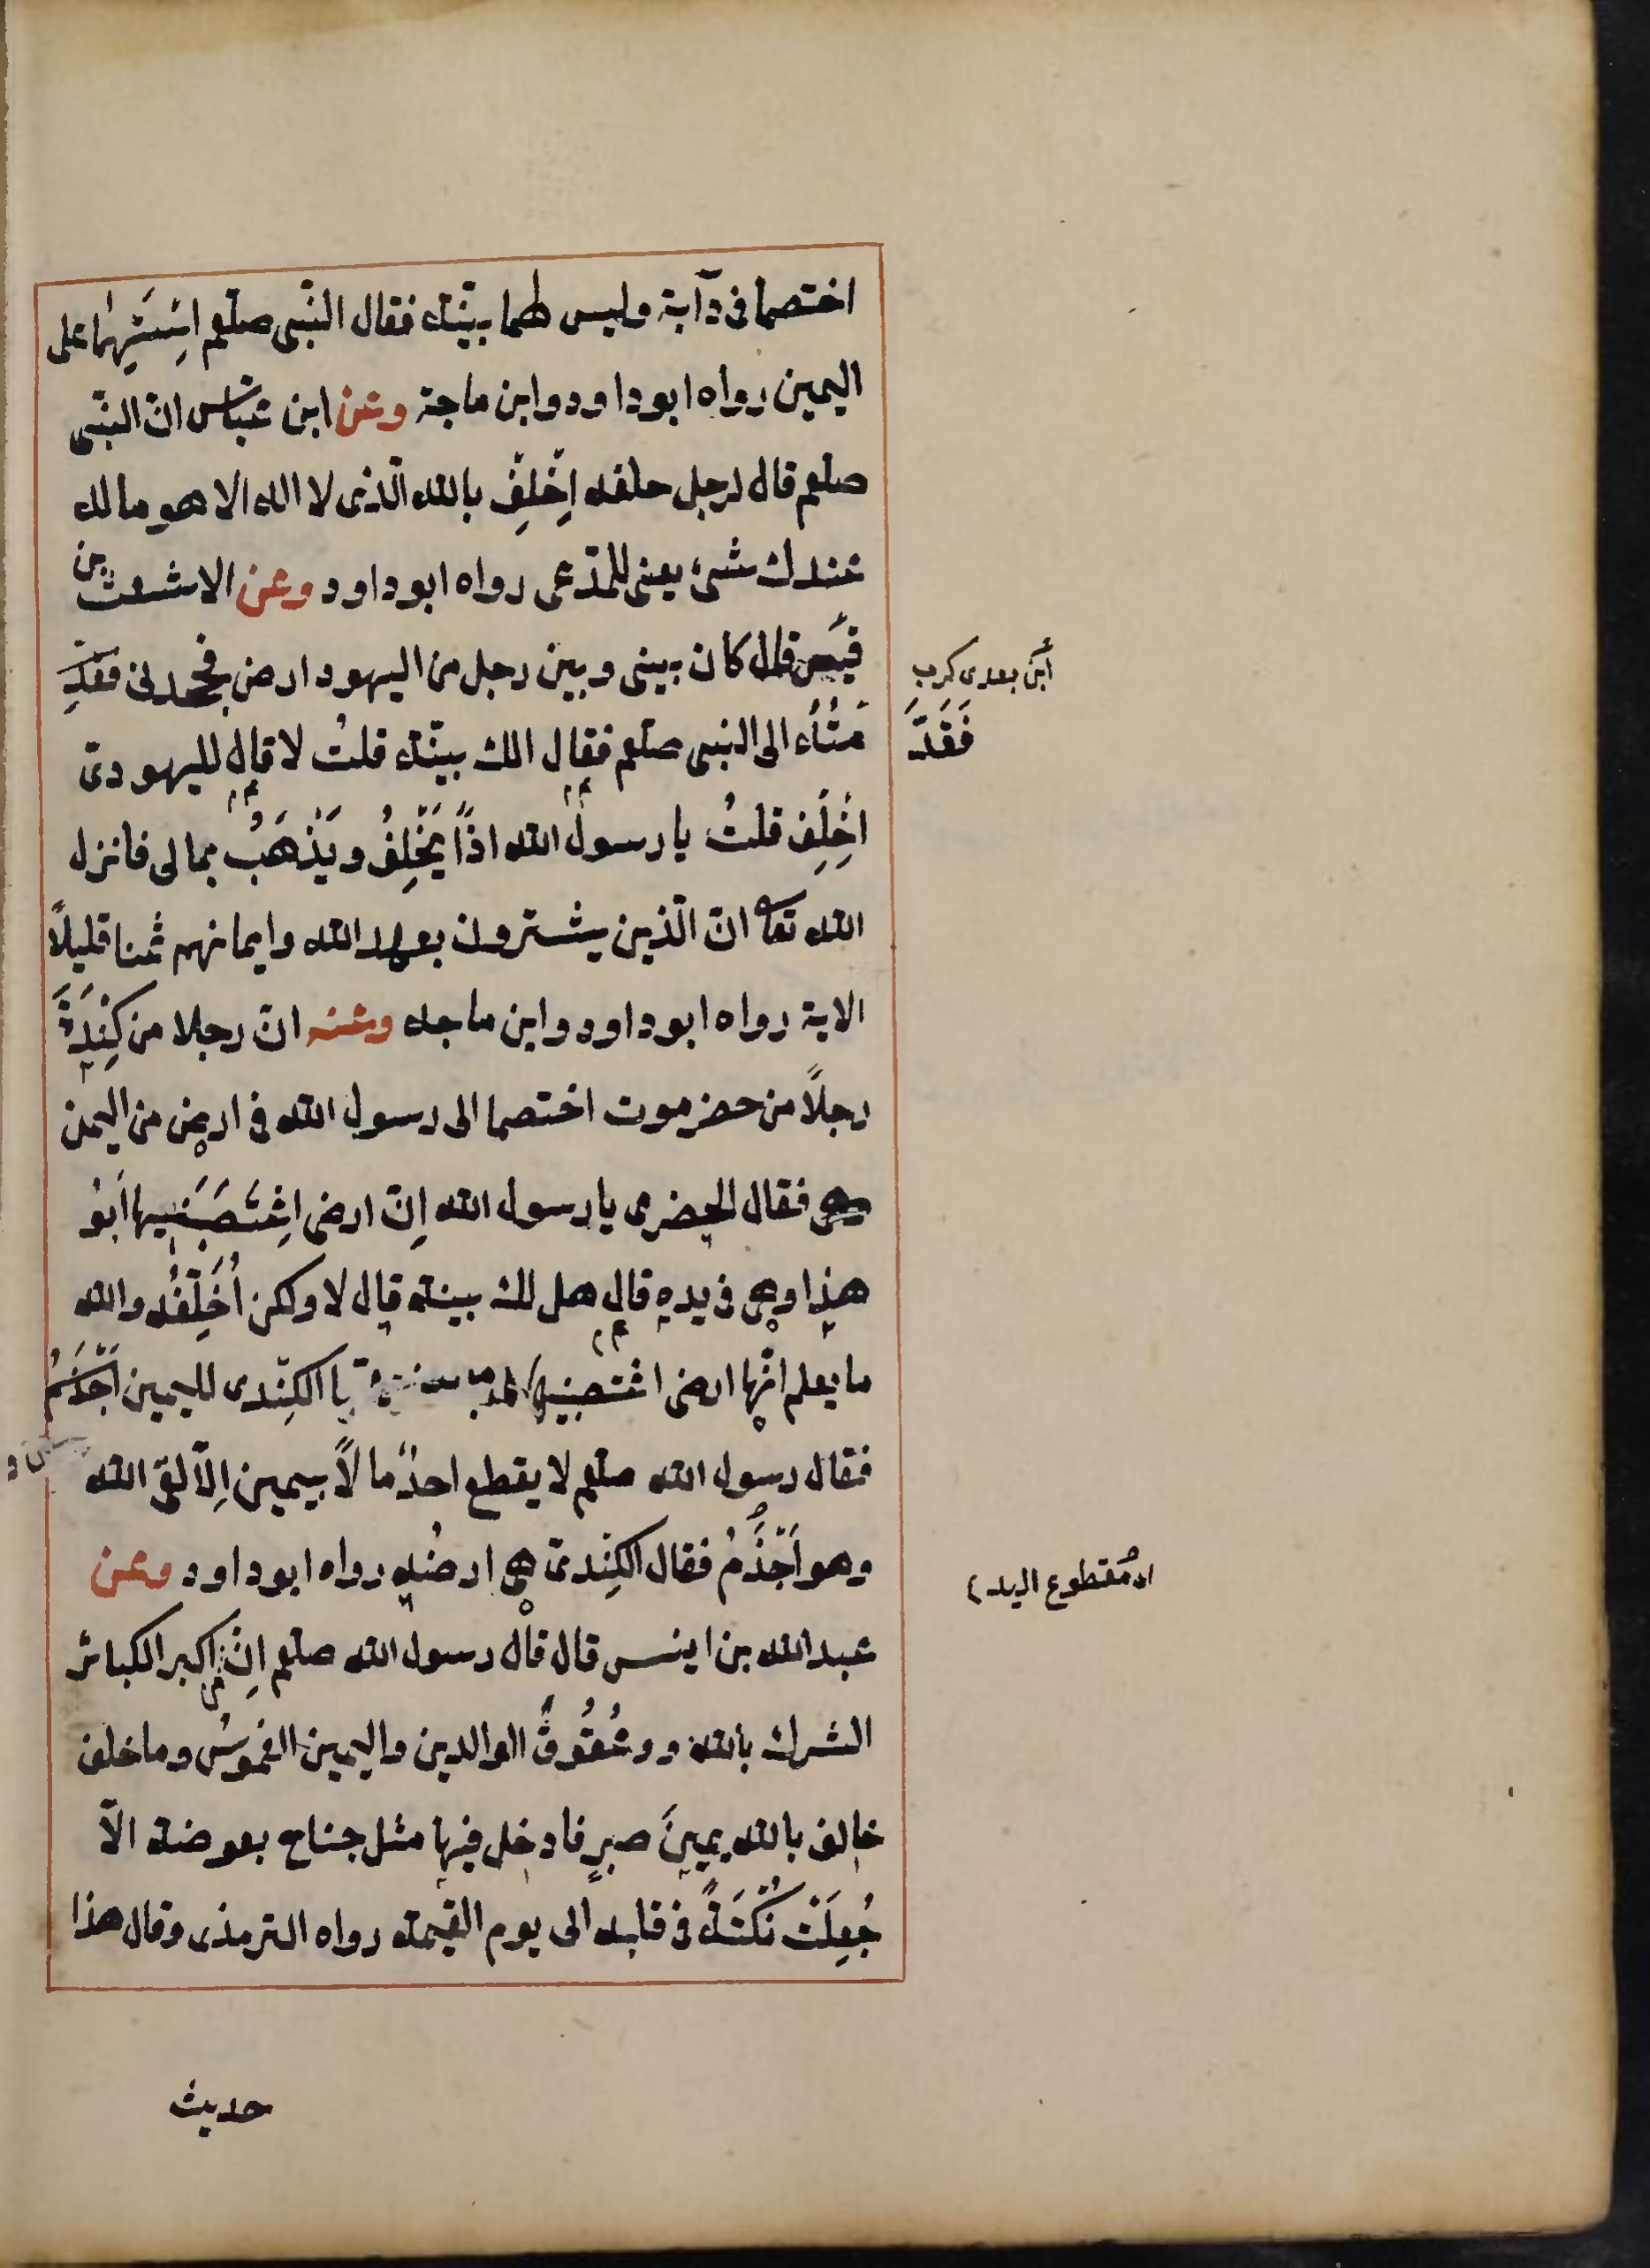 اختصما فى دآبة وليس لهما بيّنة فقال النّبى صلعم اسْتَهِما على
اليمين رواه ابو داود وابن ماجة وعن ابن عبّاس انّ النبّى
صلعم قال لرجل حلفه اِحْلِفْ بالله الّذى لا اله الا هو ماله
عندك شئ يعنى للمدّعى رواه ابو داود وعن الاشعث بن
قيس قال كان بينى وبين رجل من اليهود ارض فجحدنى فقدّ
مْتُهُ الى النبى صلعم فقال الك بيّنة قلتُ لا قال لليهودىّ
اِحْلِف قلتُ يا رسول الله اذًا يَحْلِفُ ويَذْهَبُ بمالى فانزل
الله تعا انّ الّذين يشترون بعهد الله وايمانهم ثمنا قليلاً
الاية رواه ابو داود وابن ماجه وعنه انّ رجلا من كِنْدَةَ
رجلاً من حضرموت اختصما الى رسول الله فى ارض من اليمن
فقال الحضرمى يا رسول الله اِنّ ارضى اغْتَصَبَنيها اَبُو
هذا وهى فى يده قال هل لك بينة قال لا ولكن اُحَلِّفُه والله
ما يعلم انّها ارضى اغتصبنيها الكِنْدى لليمين
فقال رسول الله صلعم لا يقطع احدٌ مالاً بيمين اِلاّ لقى الله
وهو اَجْذَمُ فقال الكِنْدىّ هى ارضُه رواه ابو داود وعن
عبد الله بن انيس قال قال رسول الله صلعم اِنّ من اكبر الكبائر
الشرك بالله و وعُقُوقُ الوالدين واليمين الغموسُ وما حلف
حالف بالله يمينَ صبرٍ فادخل فيها مثل جناح بعوضة الاّ
جُعِلَتْ نُكْتَةً فى قلبه الى يوم القيمة رواه الترمذى وقال هذا
حديث
اَبْن معدى كرب
فَقَدَّ
مقطوع اليد